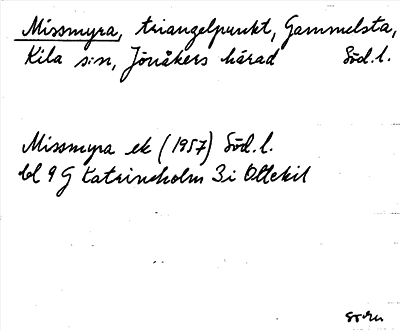 Missmyra, triangelpunkt, Gammelsta,
Kila s:n, Jönåkers härad Söd.l.
Missmyra ek (1957) Söd.l.
bl 9G Katrineholm 3i Ottekil